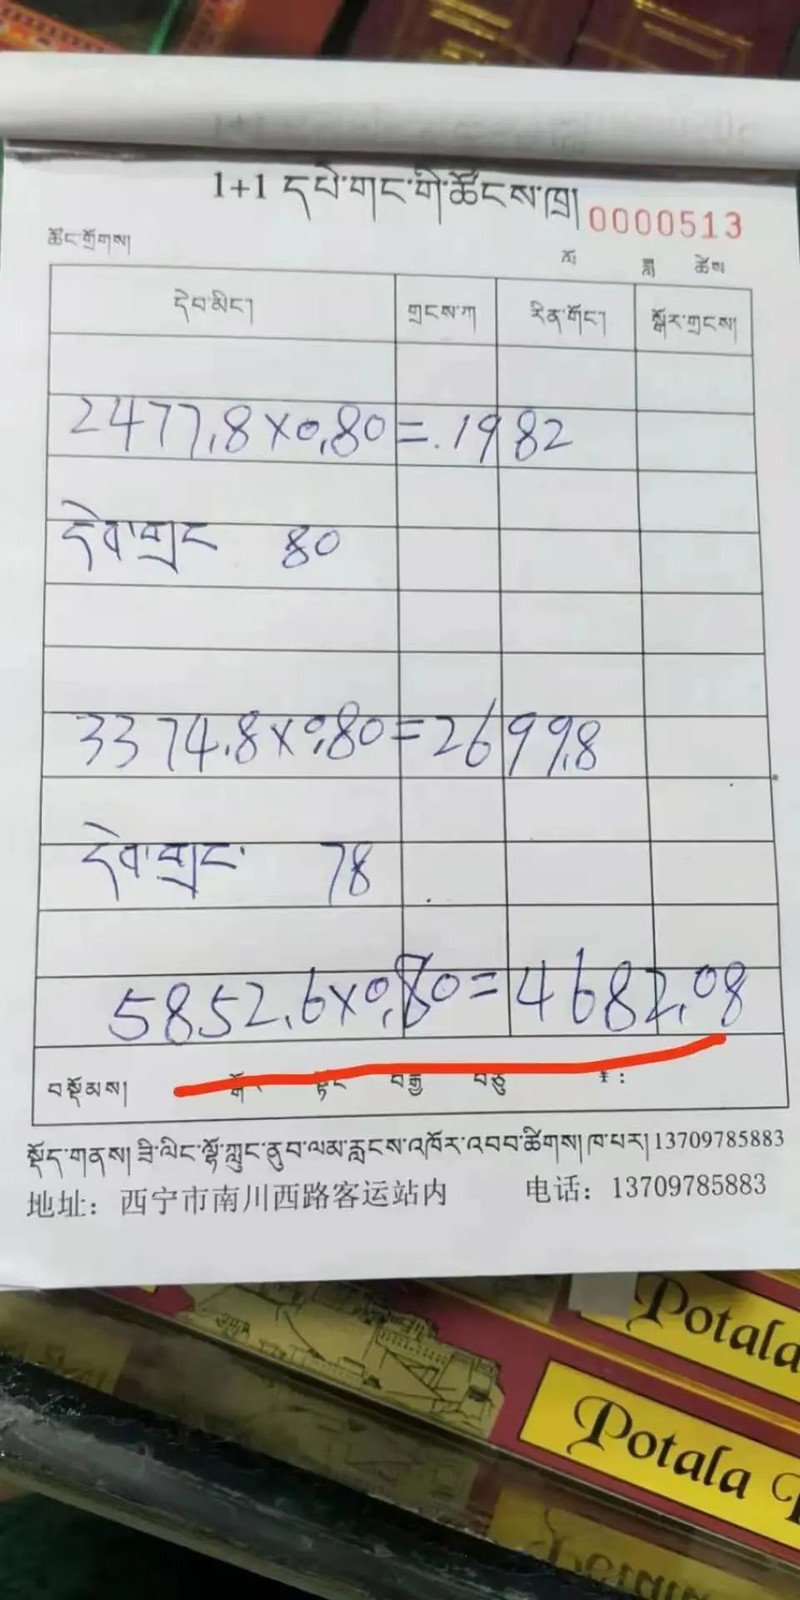 1+1 དཔེ་གང་གི་ཚོངས་ཁྲ། 0000513
ཚོང་གྲོགས། ལོ ཟླ ཚེས
དེབ་མིང་། གྲངས་ཀ རིན་གོང་། སྒོར་གྲངས།
2477.8×0.80=.1982
དེབ་གྲང 80
3374.8×0.80=2699.8
དེབ་གྲང་ 78
5852.6×0.80=4682.08
བསྡོམས། སྒོར སྟོང བརྒྱ བཅུ ¥:
སྡོད་གནས། ཟི་ལིང་ལྷོ་ཀླུང་ནུབ་ལམ་རླངས་འཁོར་འབབ་ཚིགས། ཁ་པར། 13709785883
地址：西宁市南川西路客运站内 电话：13709785883
Potala
Potala